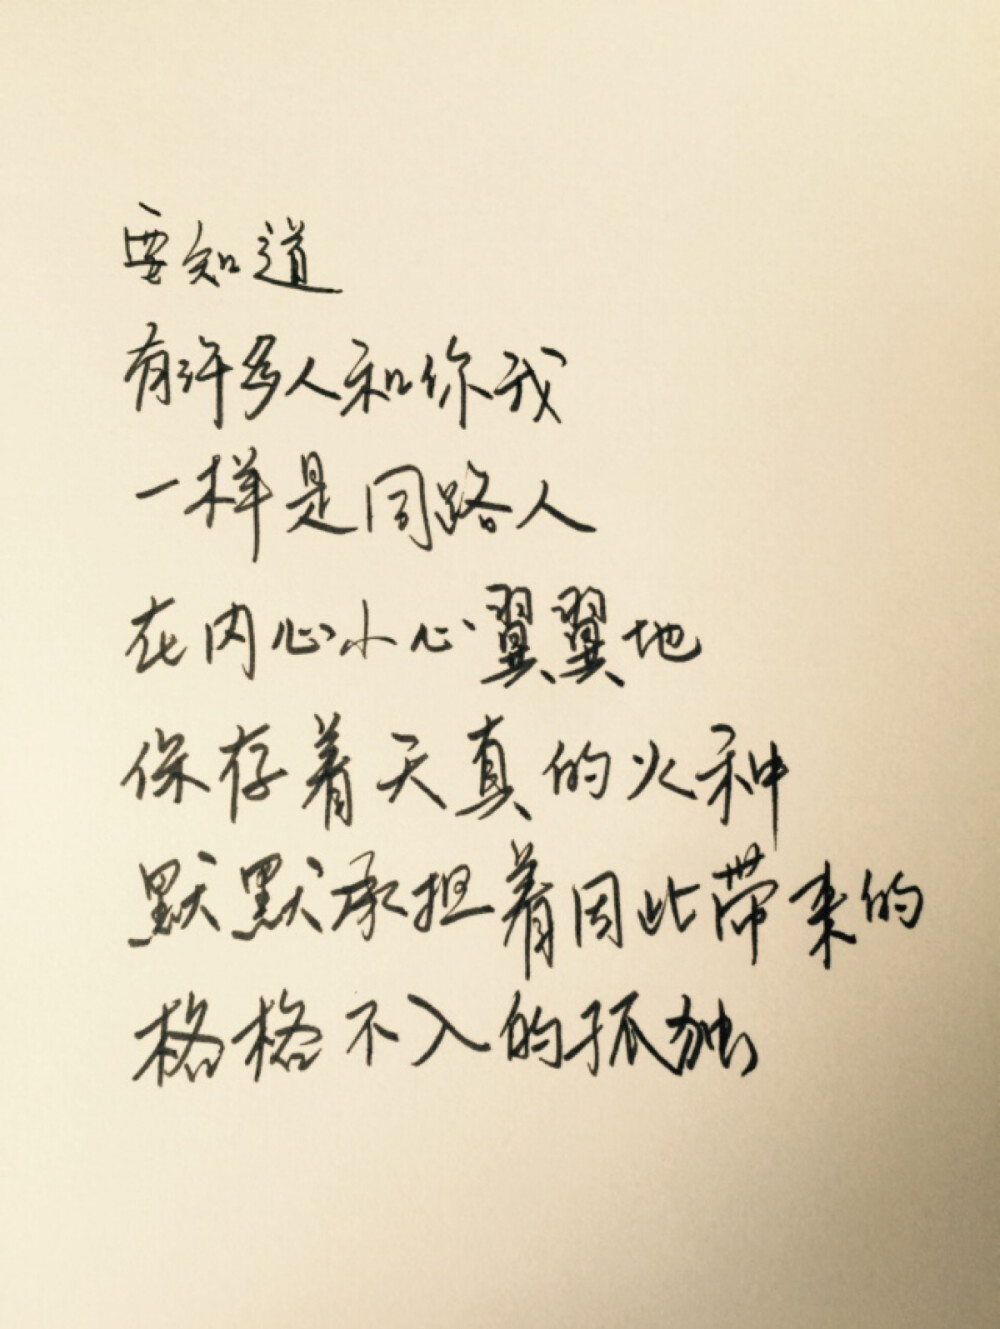 要知道
有许多人和你我
一样是同路人
在内心小心翼翼地
保存着天真的火种
默默承担着因此带来的
格格不入的孤独